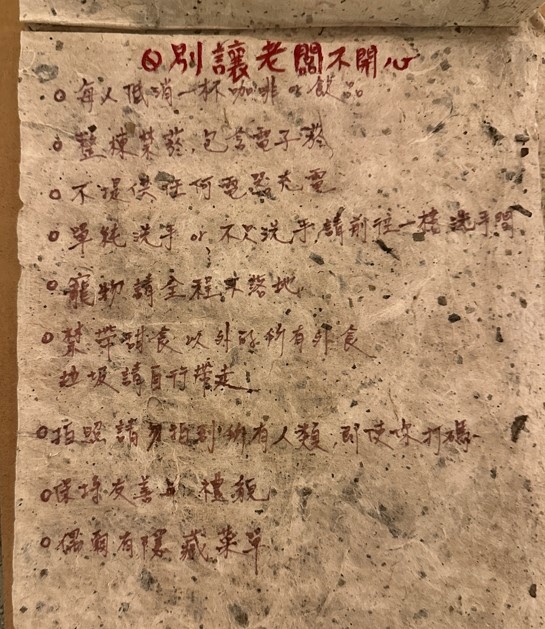 別讓老闆不開心
每人低消一杯咖啡or飲品
整棟禁菸,包含電子菸
不提供任何電器充電
單純洗手 or 不只洗手,請前往一樓洗手間
寵物請全程不落地
禁帶副食以外的所有外食
垃圾請自行帶走
拍照請勿拍到所有人類,即使你打碼
保持友善與禮貌
偶有隱藏菜單